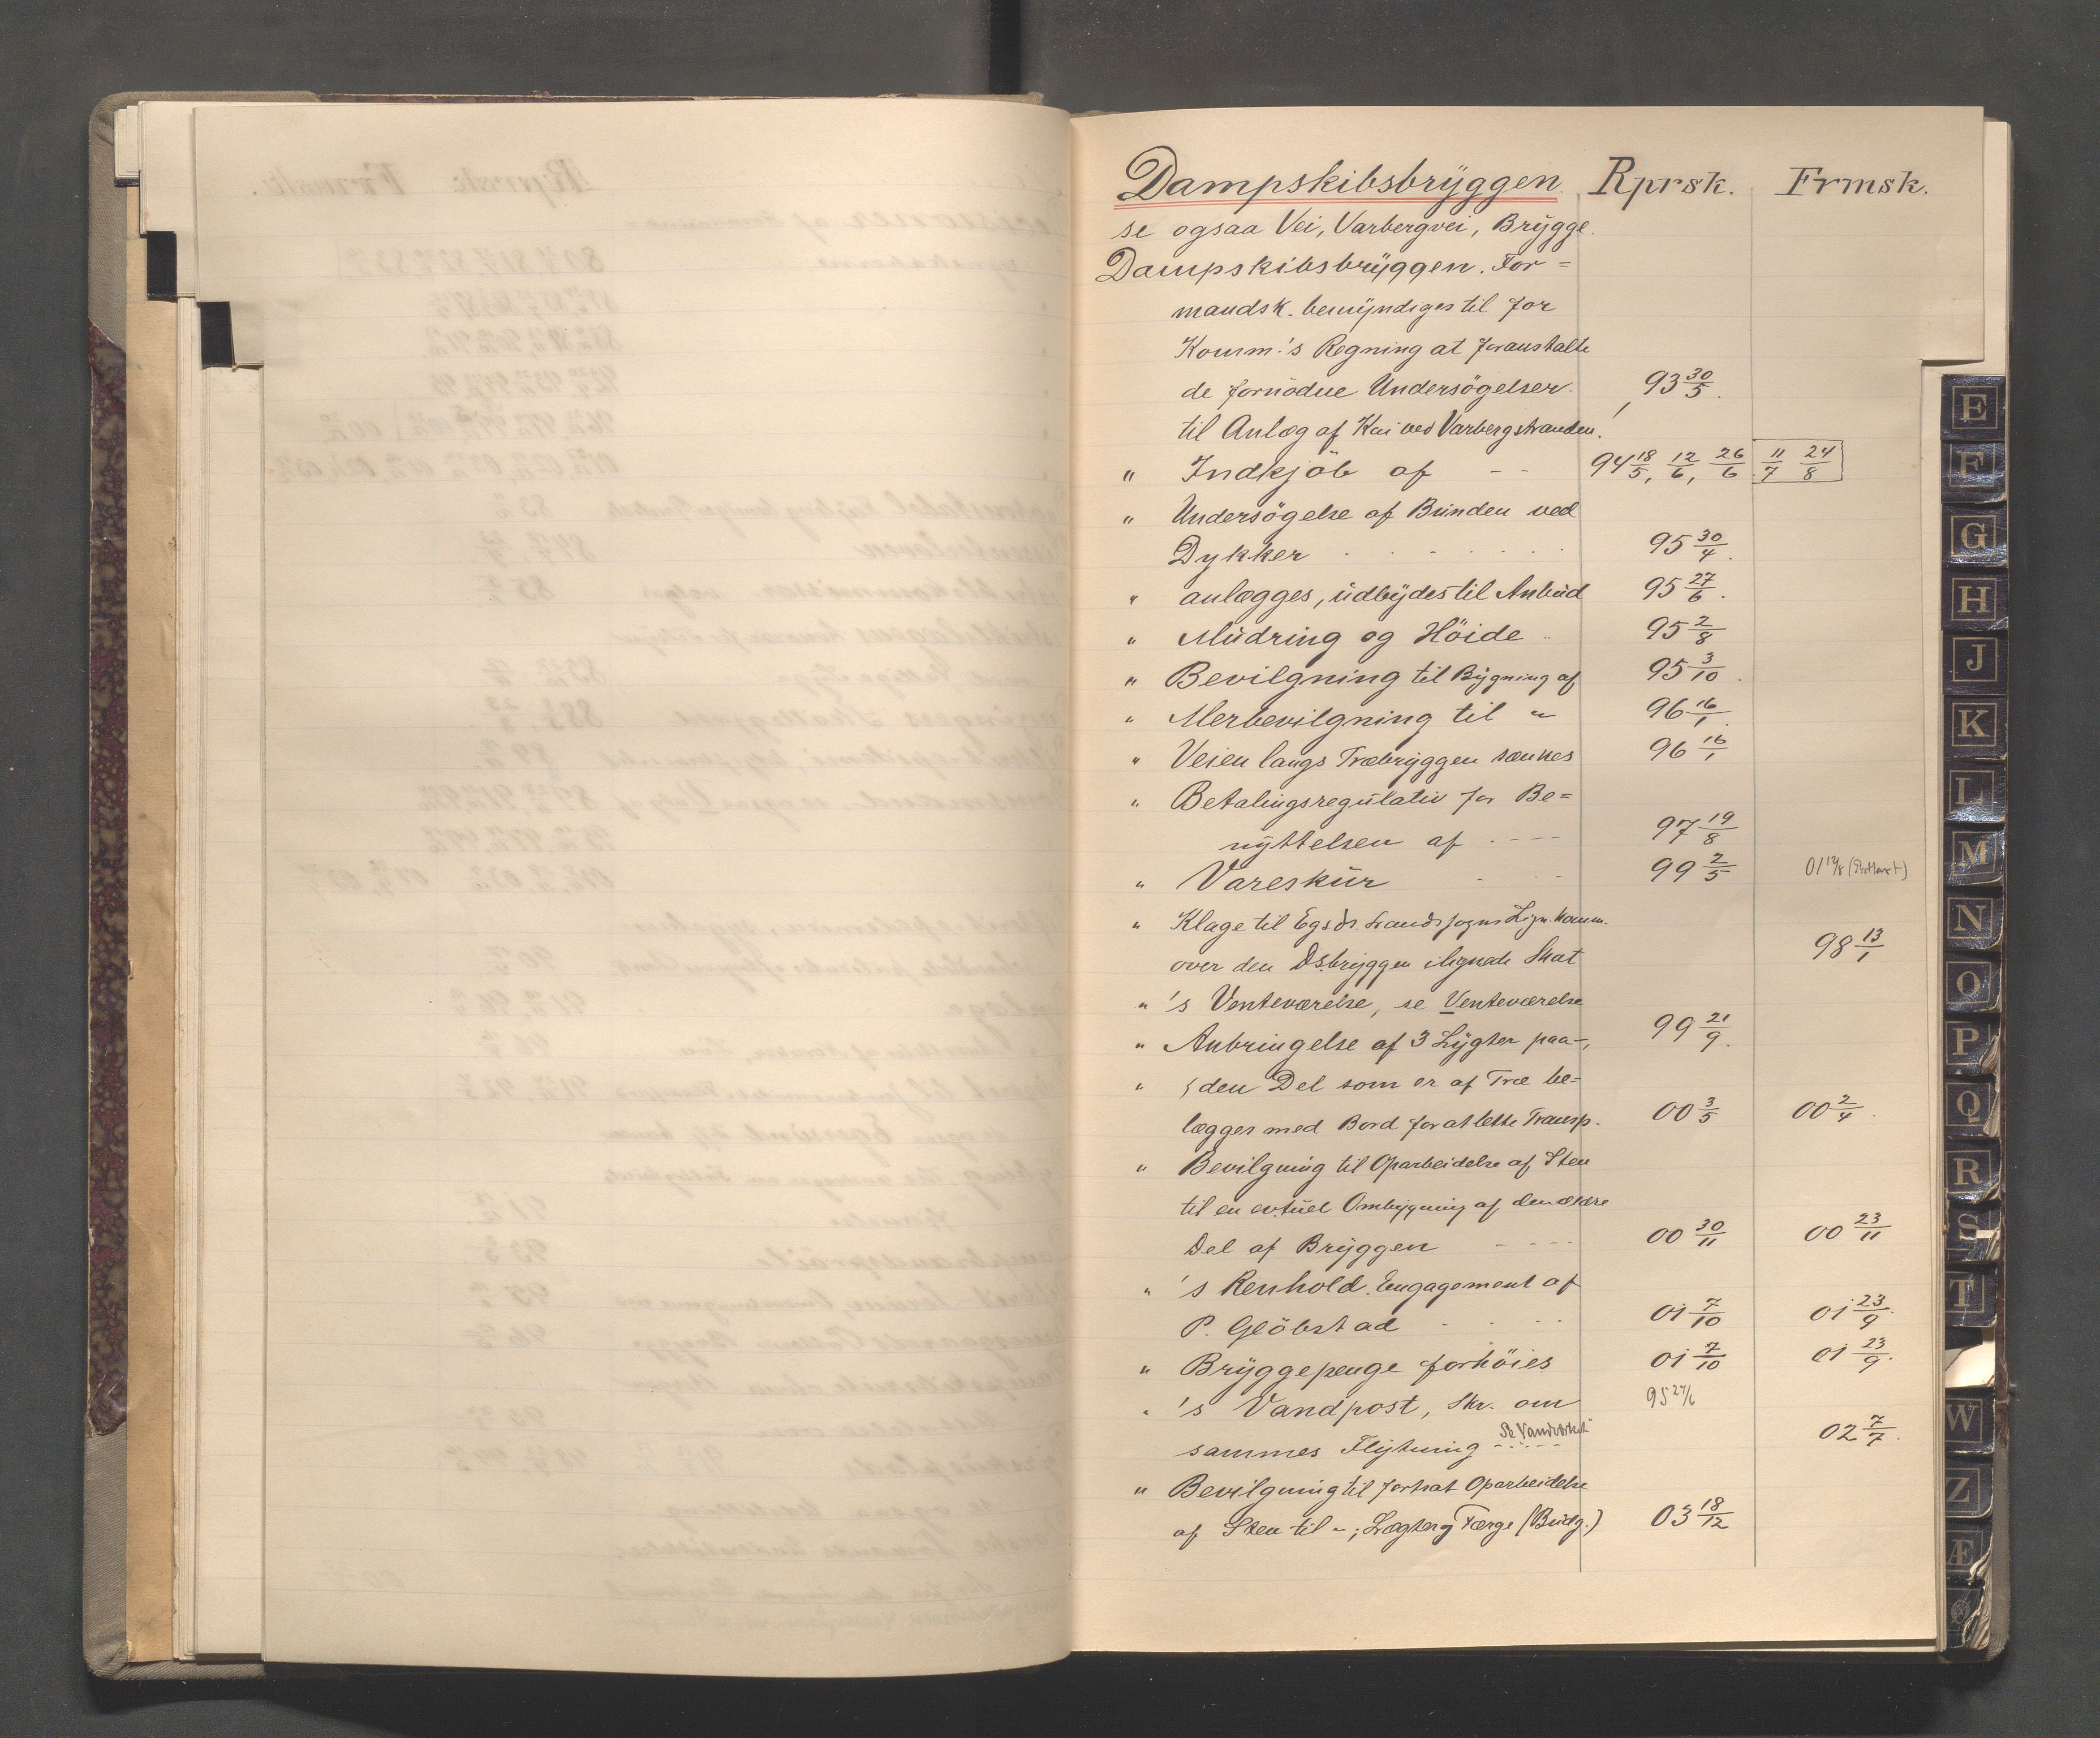 Dampskibsbryggen. Rprsk. Frmsk.
se ogsaa Vei, Varbergvei, Brygge.
Dampskibsbryggen. For=
mandsk. bemyndiges til for
Komm.'s Regning at foranstalte
de fornödne Undersögelser 93 30/5.
til Anlæg af Kai ved Varbergstranden.
" Indkjöb af - - 94 18/5, 12/6, 26/6 11/7 24/8
" Undersögelse af Bunden ved
Dykker . . . . . . 95 30/4.
" anlægges, udbydes til Anbud 95 27/6.
" Mudring og Höide .. 95 2/8
" Bevilgning til Bygning af 95 3/10.
" Merbevilgning til " 96 16/1.
" Veien langs Træbryggen sænkes 96 16/1
" Betalingsregulativ for Be=
nyttelsen af . - - - 97 19/8
" Vareskur - - - 99 2/5 01 12/8
" Klage til Egsds. Landssogns Lgn.komm.
over den Dsbryggen ilignede Skat 98 13/1
" 's Venteværelse, se Venteværelse
" Anbringelse af 3 Lygter paa -, 99 21/9.
" , den Del som er af Træ be=
lægges med Bord for at lette Transp. 00 3/5 00 2/4.
" Bevilgning til Oparbeidelse af Sten
til en evtuel Ombygning af den ældre
Del af Bryggen - - - - 00 30/11 00 23/11
" 's Renhold. Engagement af
P. Glöbstad . . . . 01 7/10 01 23/9.
" Bryggepenge forhöies 01 7/10 01 23/9.
" 's Vandpost, Skr. om 95 27/6
sammes Flytning - - - Se Vandverket 02 7/7.
" Bevilgning til fortsat Oparbeidelse
af Sten til -; Lægterg Færge (Budg.) 03 18/12
E
F
G
H
J
K
L
M
N
O
P
Q
R
S
T
W
Z
Æ
Ø